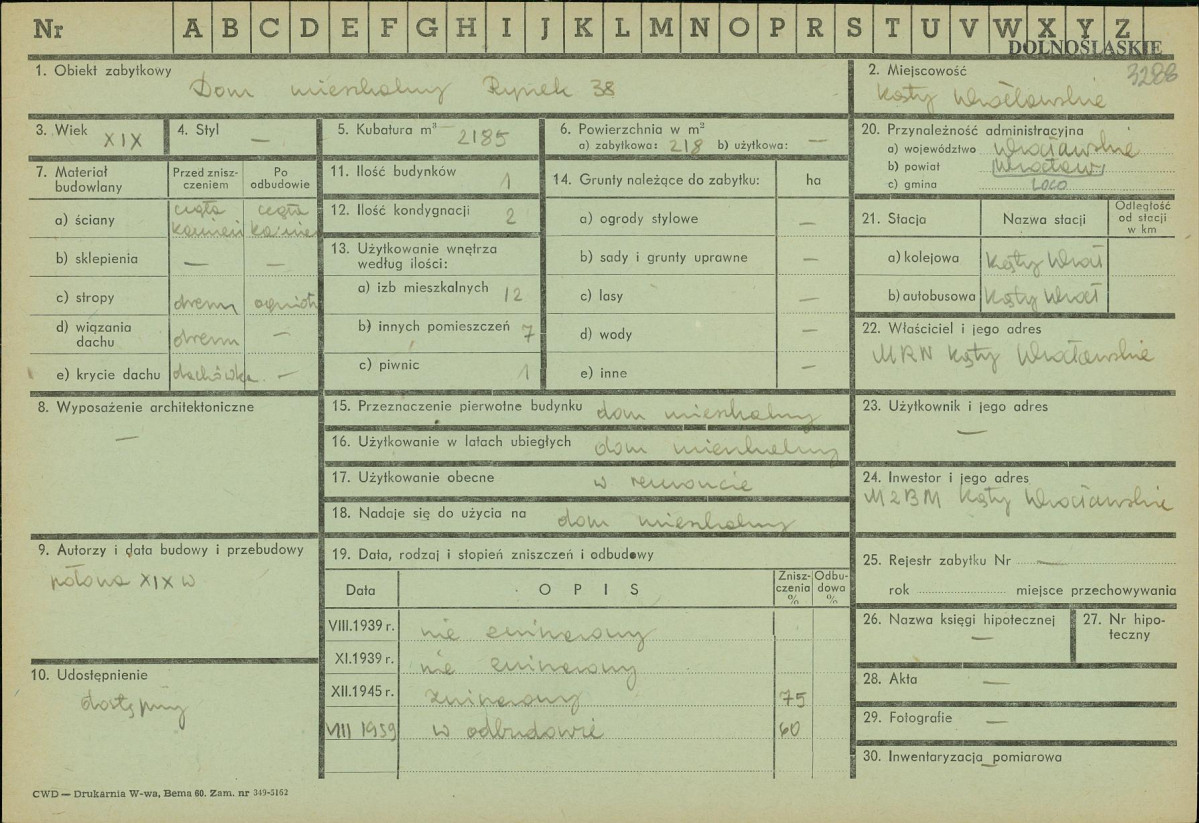 Nr A B C D E F G H I J K L M N O P R S T U V W X Y Z
DOLNOŚLĄSKIE
3288
1. Obiekt zabytkowy
Dom mieszkalny Rynek 38
2. Miejscowość
Kąty Wrocławskie
3. Wiek XIX
4. Styl —
5. Kubatura m³ 2185
6. Powierzchnia w m²
a) zabytkowa: 218 b) użytkowa: —
20. Przynależność administracyjna
a) województwo wrocławskie
b) powiat Wrocław
c) gmina loco
7. Materiał budowlany
Przed zniszczeniem
Po odbudowie
a) ściany cegła kamień cegła kamień
b) sklepienia — —
c) stropy drewn
d) wiązania dachu drewn —
e) krycie dachu dachówka —
11. Ilość budynków 1
12. Ilość kondygnacji 2
13. Użytkowanie wnętrza
według ilości:
a) izb mieszkalnych 12
b) innych pomieszczeń 7
c) piwnic 1
14. Grunty należące do zabytku: ha
a) ogrody stylowe —
b) sady i grunty uprawne —
c) lasy —
d) wody —
e) inne —
21. Stacja Nazwa stacji Odległość od stacji w km
a) kolejowa Kąty Wrocł
b) autobusowa Kąty Wrocł
22. Właściciel i jego adres
MRN Kąty Wrocławskie
8. Wyposażenie architektoniczne
—
15. Przeznaczenie pierwotne budynku dom mieszkalny
16. Użytkowanie w latach ubiegłych dom mieszkalny
17. Użytkowanie obecne w remoncie
18. Nadaje się do użycia na dom mieszkalny
23. Użytkownik i jego adres
—
24. Inwestor i jego adres
MZBM Kąty Wrocławskie
9. Autorzy i data budowy i przebudowy
połowa XIX w
10. Udostępnienie
dostępny
19. Data, rodzaj i stopień zniszczeń i odbudowy
Data OPIS Zniszczenia % Odbudowa %
VIII.1939 r. nie zniszczony
XI.1939 r. nie zniszczony
XII.1945 r. zniszczony 75
VIII 1959 w odbudowie 60
25. Rejestr zabytku Nr —
rok miejsce przechowywania
26. Nazwa księgi hipotecznej
—
27. Nr hipoteczny
28. Akta —
29. Fotografie —
30. Inwentaryzacja pomiarowa
—
CWD — Drukarnia W-wa, Bema 60. Zam. nr 349-5162